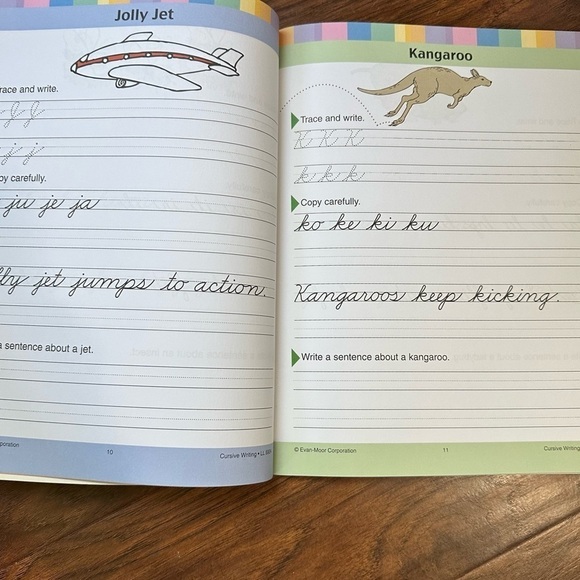 Jolly Jet
race and write.
J J
j j
py carefully.
ju je ja
lly jet jumps to action.
a sentence about a jet.
poration
10
Cursive Writing •
Kangaroo
Trace and write.
K K K
k k k
Copy carefully.
ko ke ki ku
Kangaroos keep kicking.
Write a sentence about a kangaroo.
© Evan-Moor Corporation
11
Cursive Writing